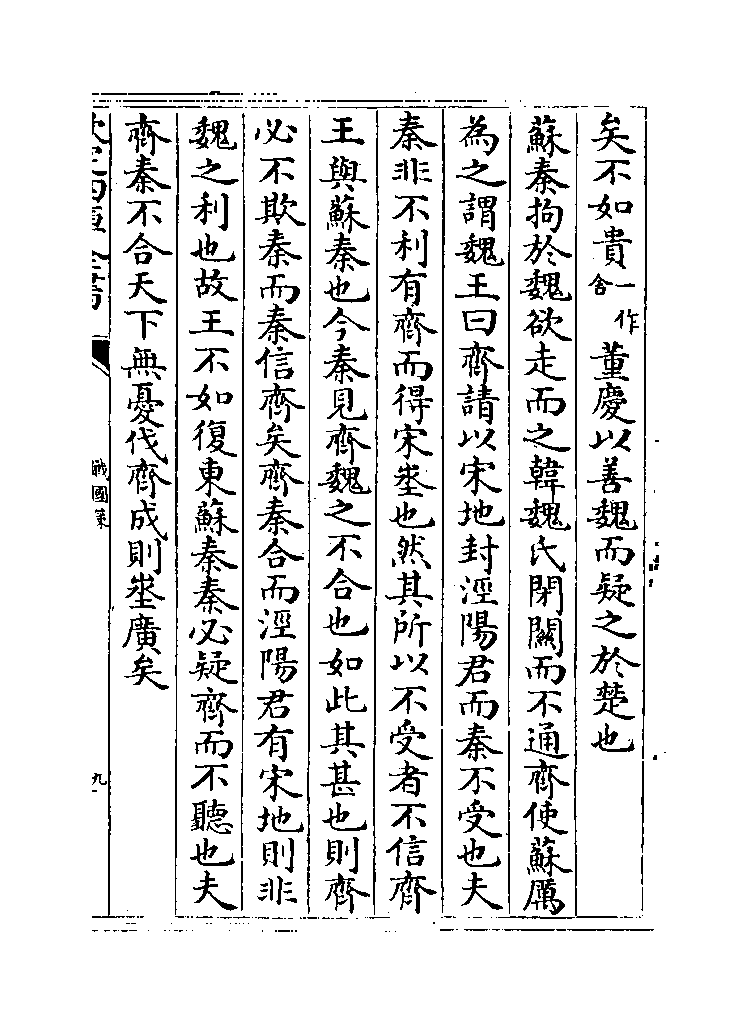 矣不如貴一作合董慶以善魏而疑之於楚也
蘇秦拘於魏欲走而之韓魏氏閉關而不通齊使蘇厲
為之謂魏王曰齊請以宋地封涇陽君而秦不受也夫
秦非不利有齊而得宋坐也然其所以不受者不信齊
王與蘇秦也今秦見齊魏之不合也如此其甚也則齊
必不欺秦而秦信齊矣齊秦合而涇陽君有宋地則非
魏之利也故王不如復東蘇秦秦必疑齊而不聽也夫
齊秦不合天下無憂伐齊成則坔廣矣
戰國策
九